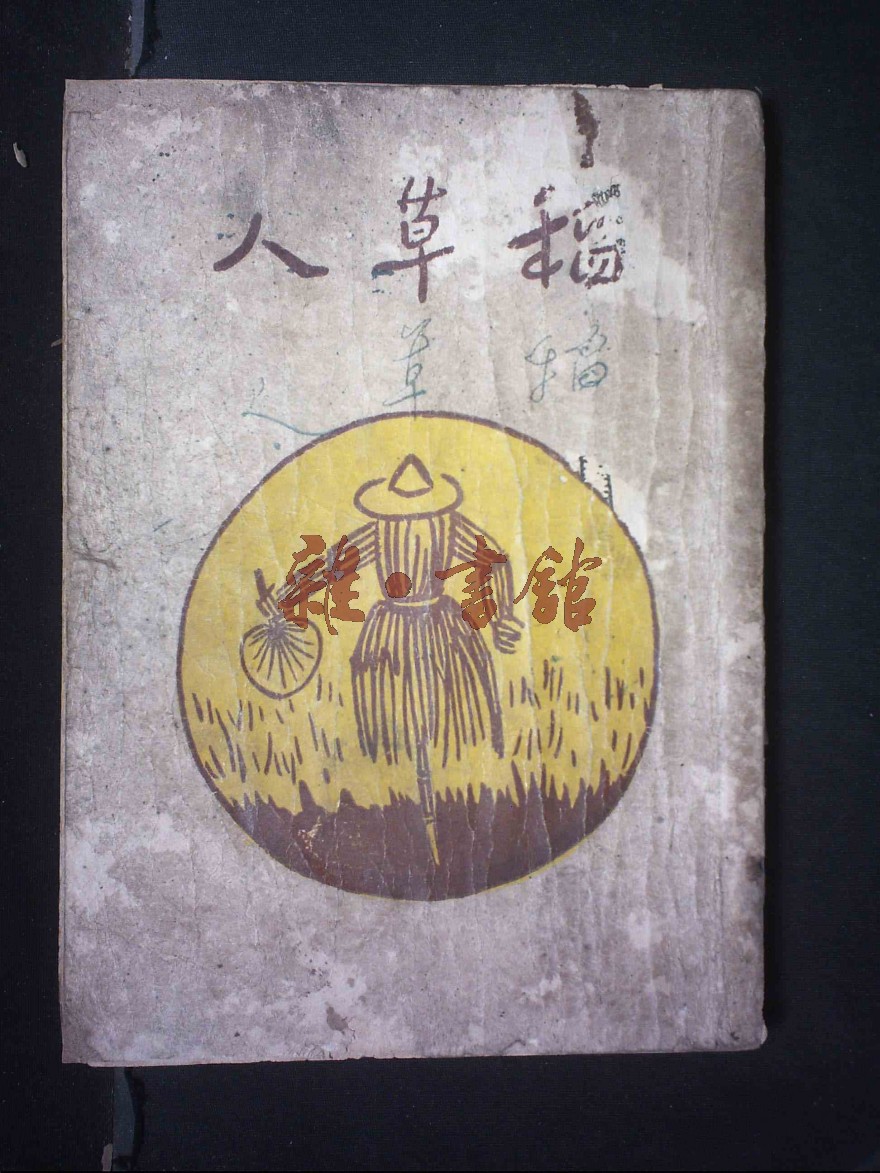 稻草人
稻草人
雜·書館